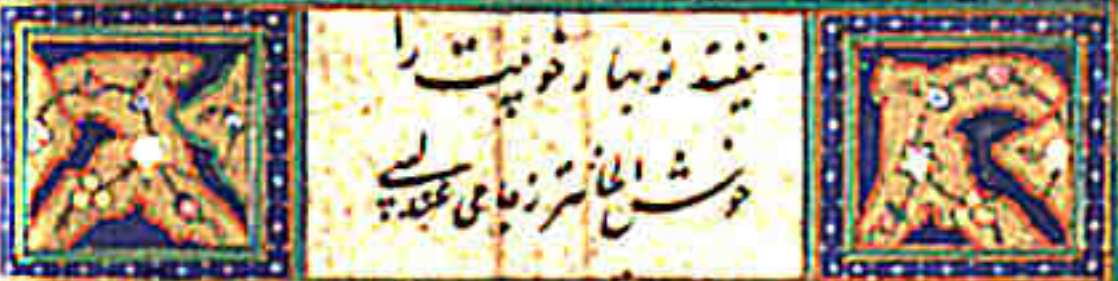 نیفتد نو بهار خوبیت را
خوش الحان تر ز جامی عندلیبی